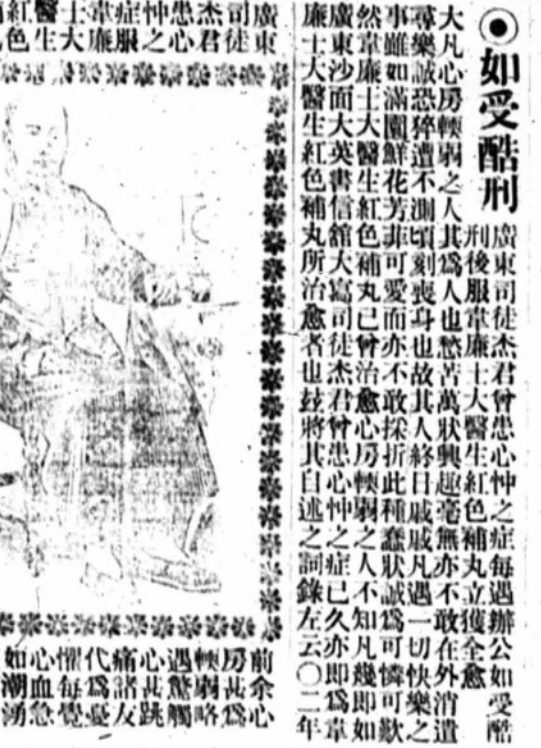 ◉如受酷刑
廣東司徒杰君曾患心忡之症每遇辦公如受酷
刑後服韋廉士大醫生紅色補丸立獲全愈
大凡心房輭弱之人其爲人也愁苦萬狀興趣毫無亦不敢在外消遣
尋樂誠恐猝遭不測頃刻喪身也故其人終日戚戚凡遇一切快樂之
事雖如滿園鮮花芳菲可愛而亦不敢採折此種蠢狀誠爲可憐可歎
然韋廉士大醫生紅色補丸已曾治愈心房輭弱之人不知凡幾即如
廣東沙面大英書信舘大寫司徒杰君曾患心忡之症已久亦即爲韋
廉士大醫生紅色補丸所治愈者也玆將其自述之詞錄左云〇二年
廣東
司徒
杰君
患心
忡之
症服
韋廉
士大
醫生
紅色
前余心
房甚爲
輭弱略
遇驚觸
心甚跳
痛諸友
代爲憂
懼每覺
心血急
如潮湧